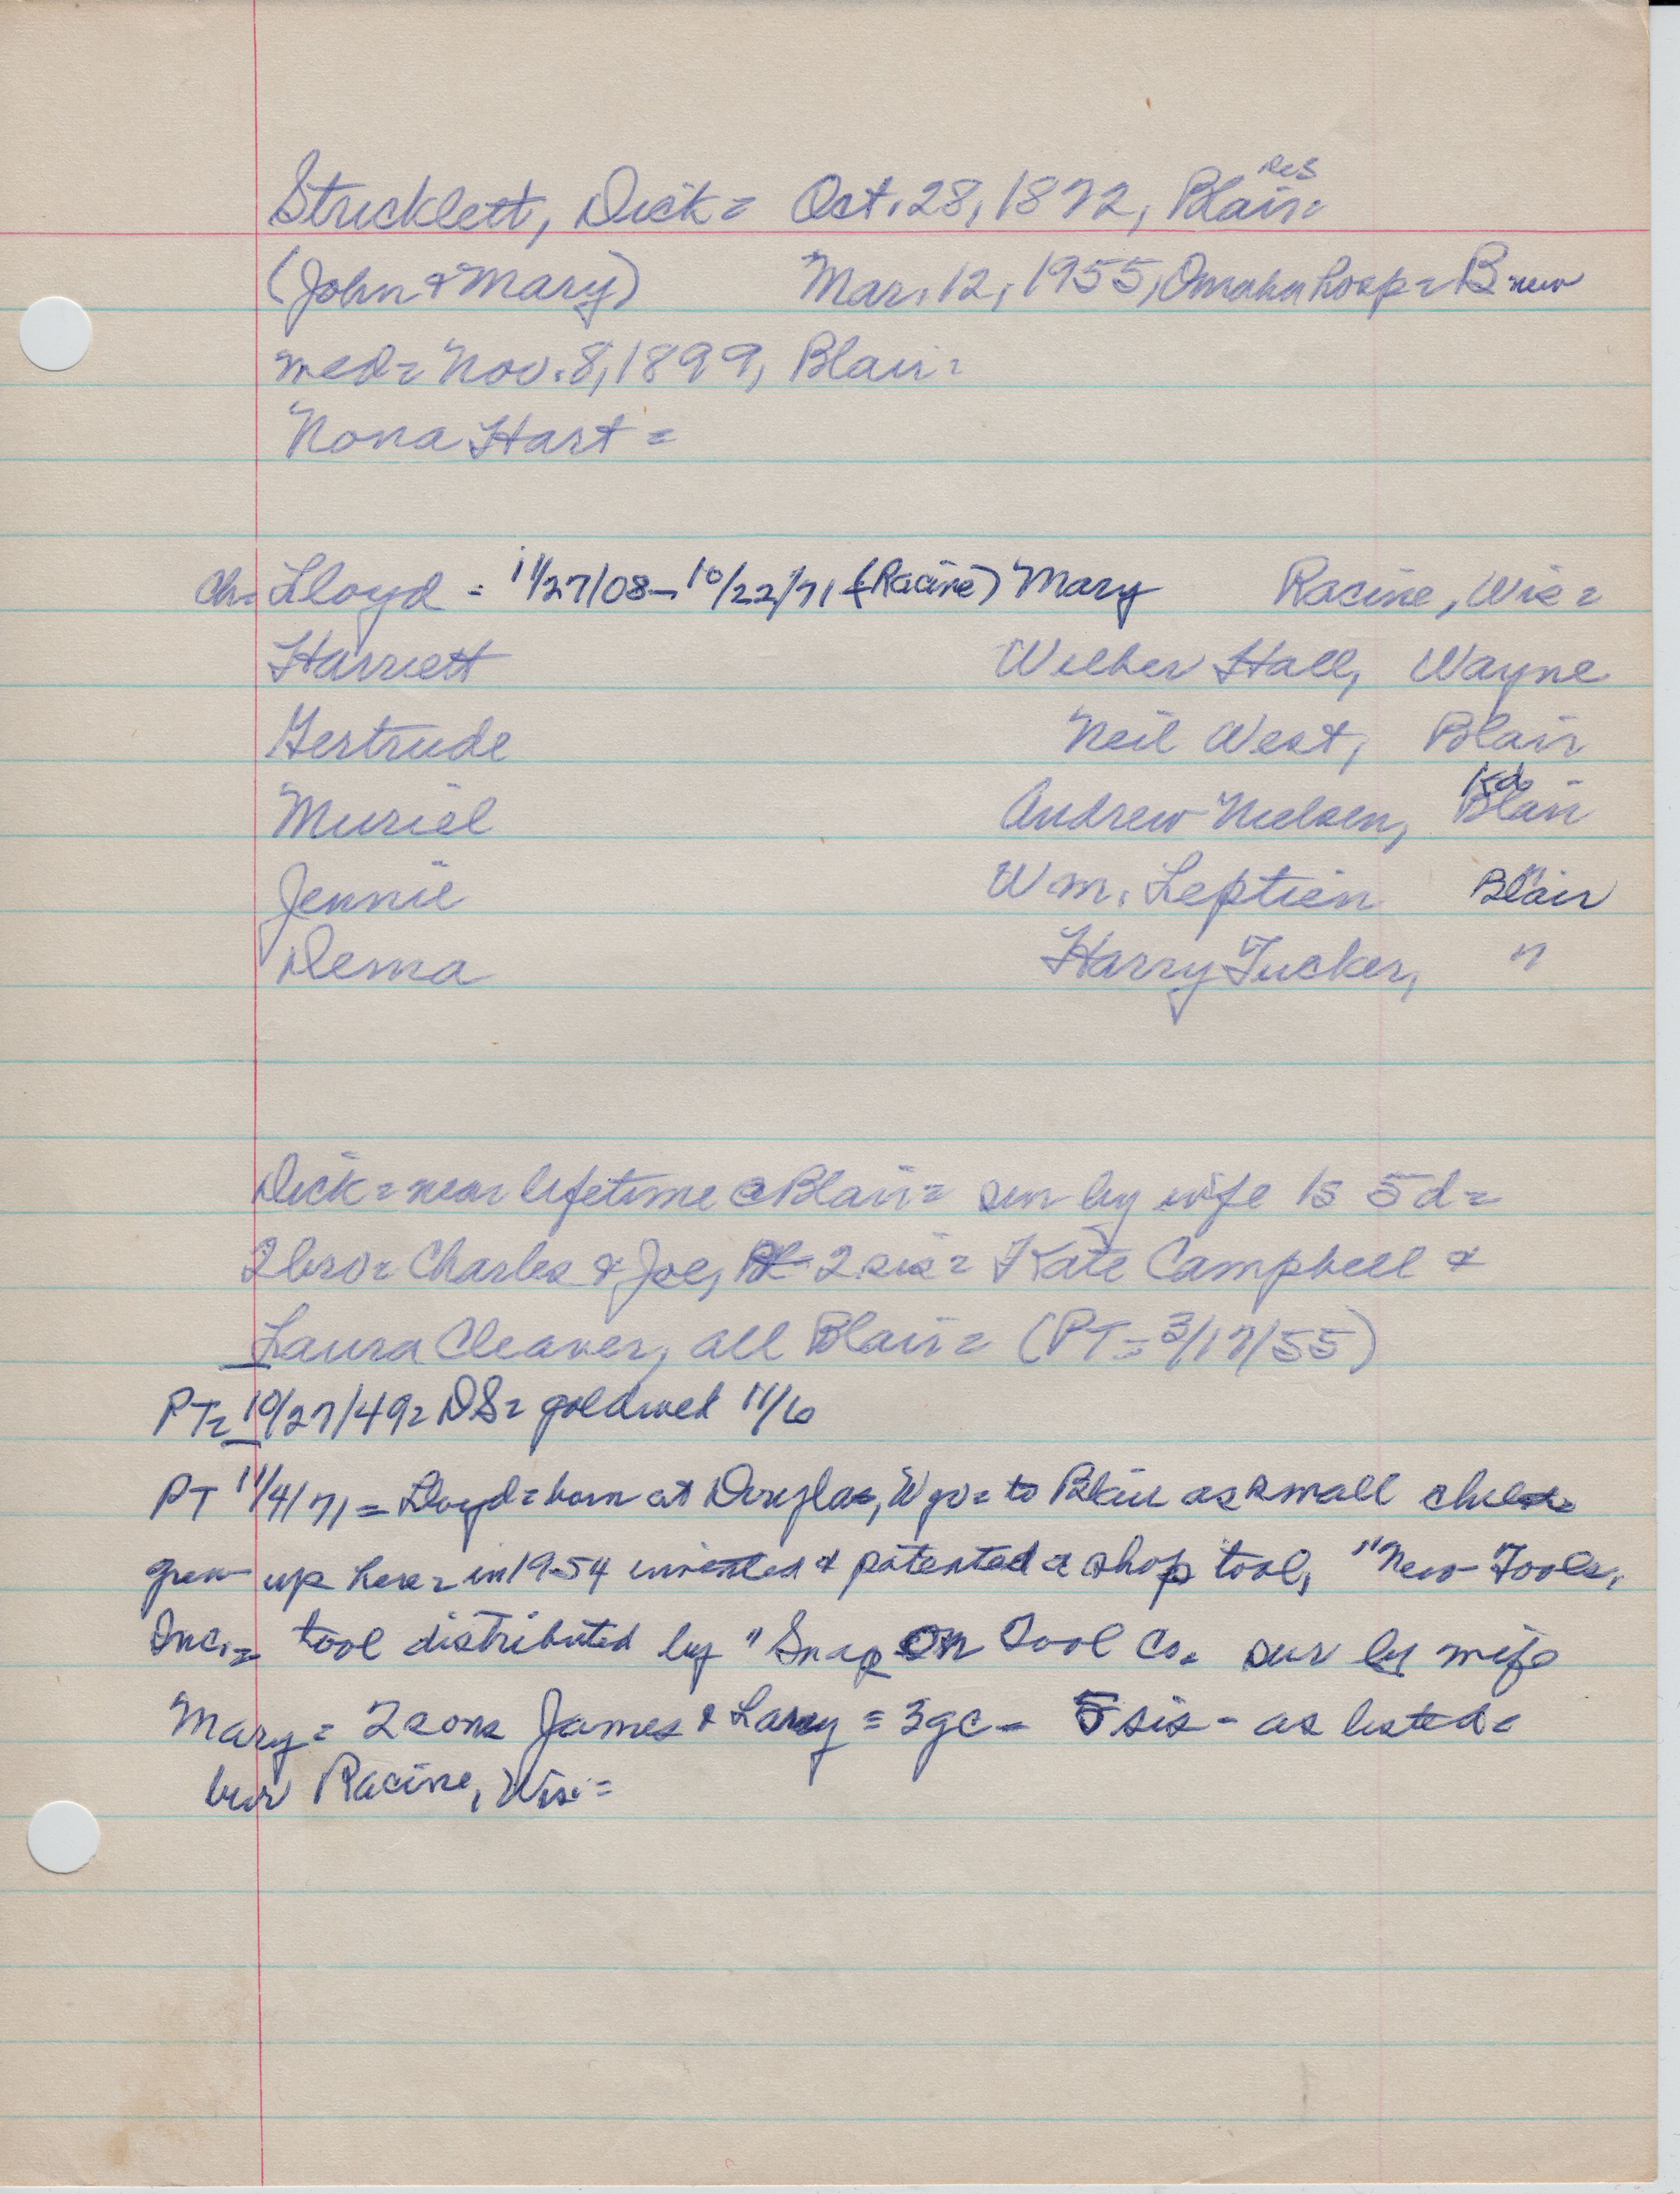 Stricklett, Dick = Oct. 28, 1872, Blair = Res
(John & Mary) Mar. 12, 1955, Omaha hosp = B new
med = Nov. 8, 1899, Blair =
Nona Hart =
Ch = Lloyd = 11/27/08 - 10/22/71 (Racine) Mary Racine, Wis =
Harriett Wilber Hall, Wayne
Gertrude Neil West, Blair
Muriel Andrew Nielsen, Blair
Jennie Wm. Leptien Blair
Dema Harry Tucker, "
Dick = near lifetime @ Blair = sur by wife 1s 5d =
2 bro = Charles & Joe, 2 sis = Kate Campbell &
Laura Cleaver, all Blair = (PT = 3/17/55)
PT = 10/27/49 = DS = gold wed 11/6
PT 11/4/71 = Lloyd = born at Douglas, Wyo = to Blair as small child
grew up here = in 1954 invented & patented a shop tool, "New Tools,
Inc. = tool distributed by "Snap On Tool Co. sur by wife
Mary = 2 sons James & Larry = 3gc - 5 sis - as listed =
bur Racine, Wis. =